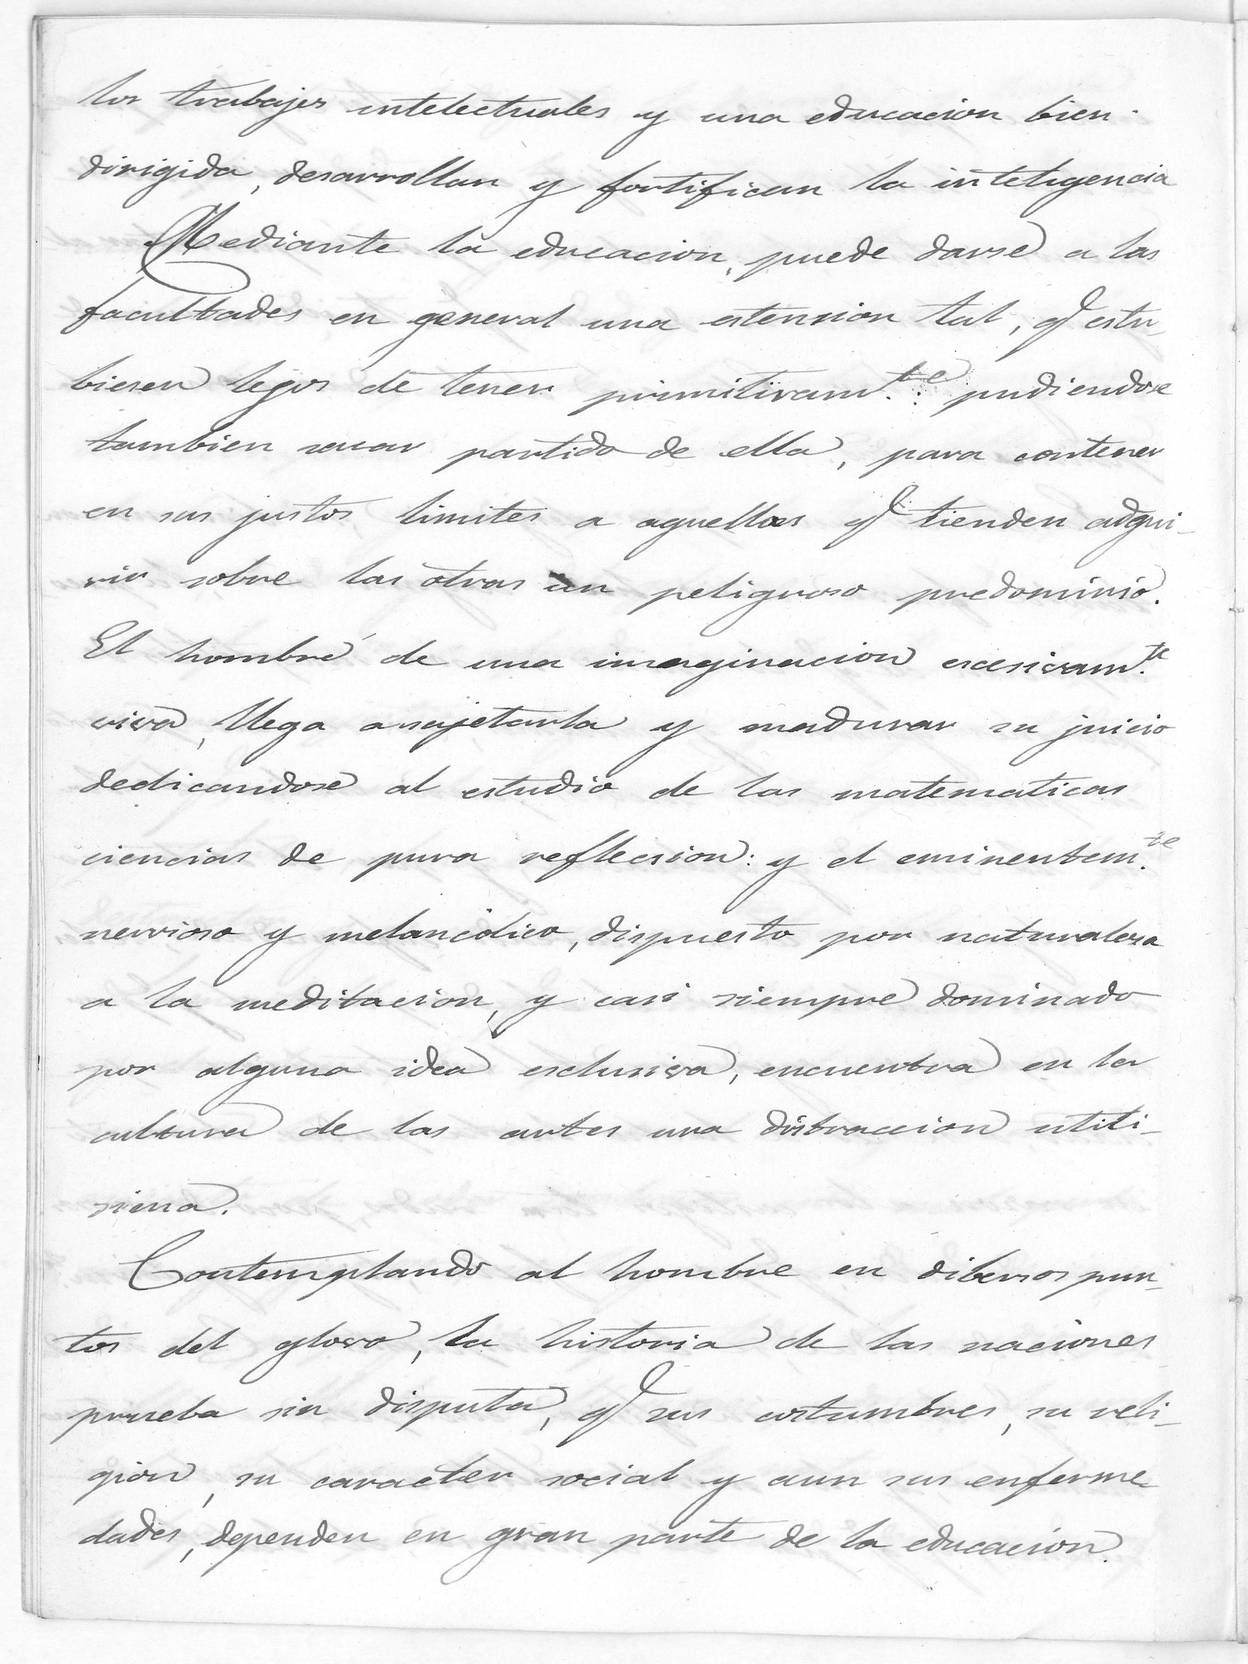 los trabajos intelectuales y una educacion bien
dirigida, desarrollan y fortifican la inteligencia
Mediante la educacion, puede darse a las
facultades en general una estension tal, q.e estu-
biesen lejos de tener primitivam.te: pudiendose
tambien sacar partido de ella, para contener
en sus justos limites a aquellas q.e tienden adqui-
rir sobre las otras un peligroso predominio.
El hombre de una imaginacion escesivam.te
viva, llega a sujetarla y madurar su juicio
dedicandose al estudio de las matematicas
ciencias de pura reflecsion: y el eminentem.te
nervioso y melancólico, dispuesto por naturalesa
a la meditacion, y casi siempre dominado
por alguna idea esclusiva, encuentra en la
cultura de las artes una distraccion utili-
sima.
Contemplando al hombre en dibersos pun-
tos del glovo, la historia de las naciones
prueba sin disputa, q.e sus costumbres, su reli-
gion, su caracter social y aun sus enferme-
dades, dependen en gran parte de la educacion.